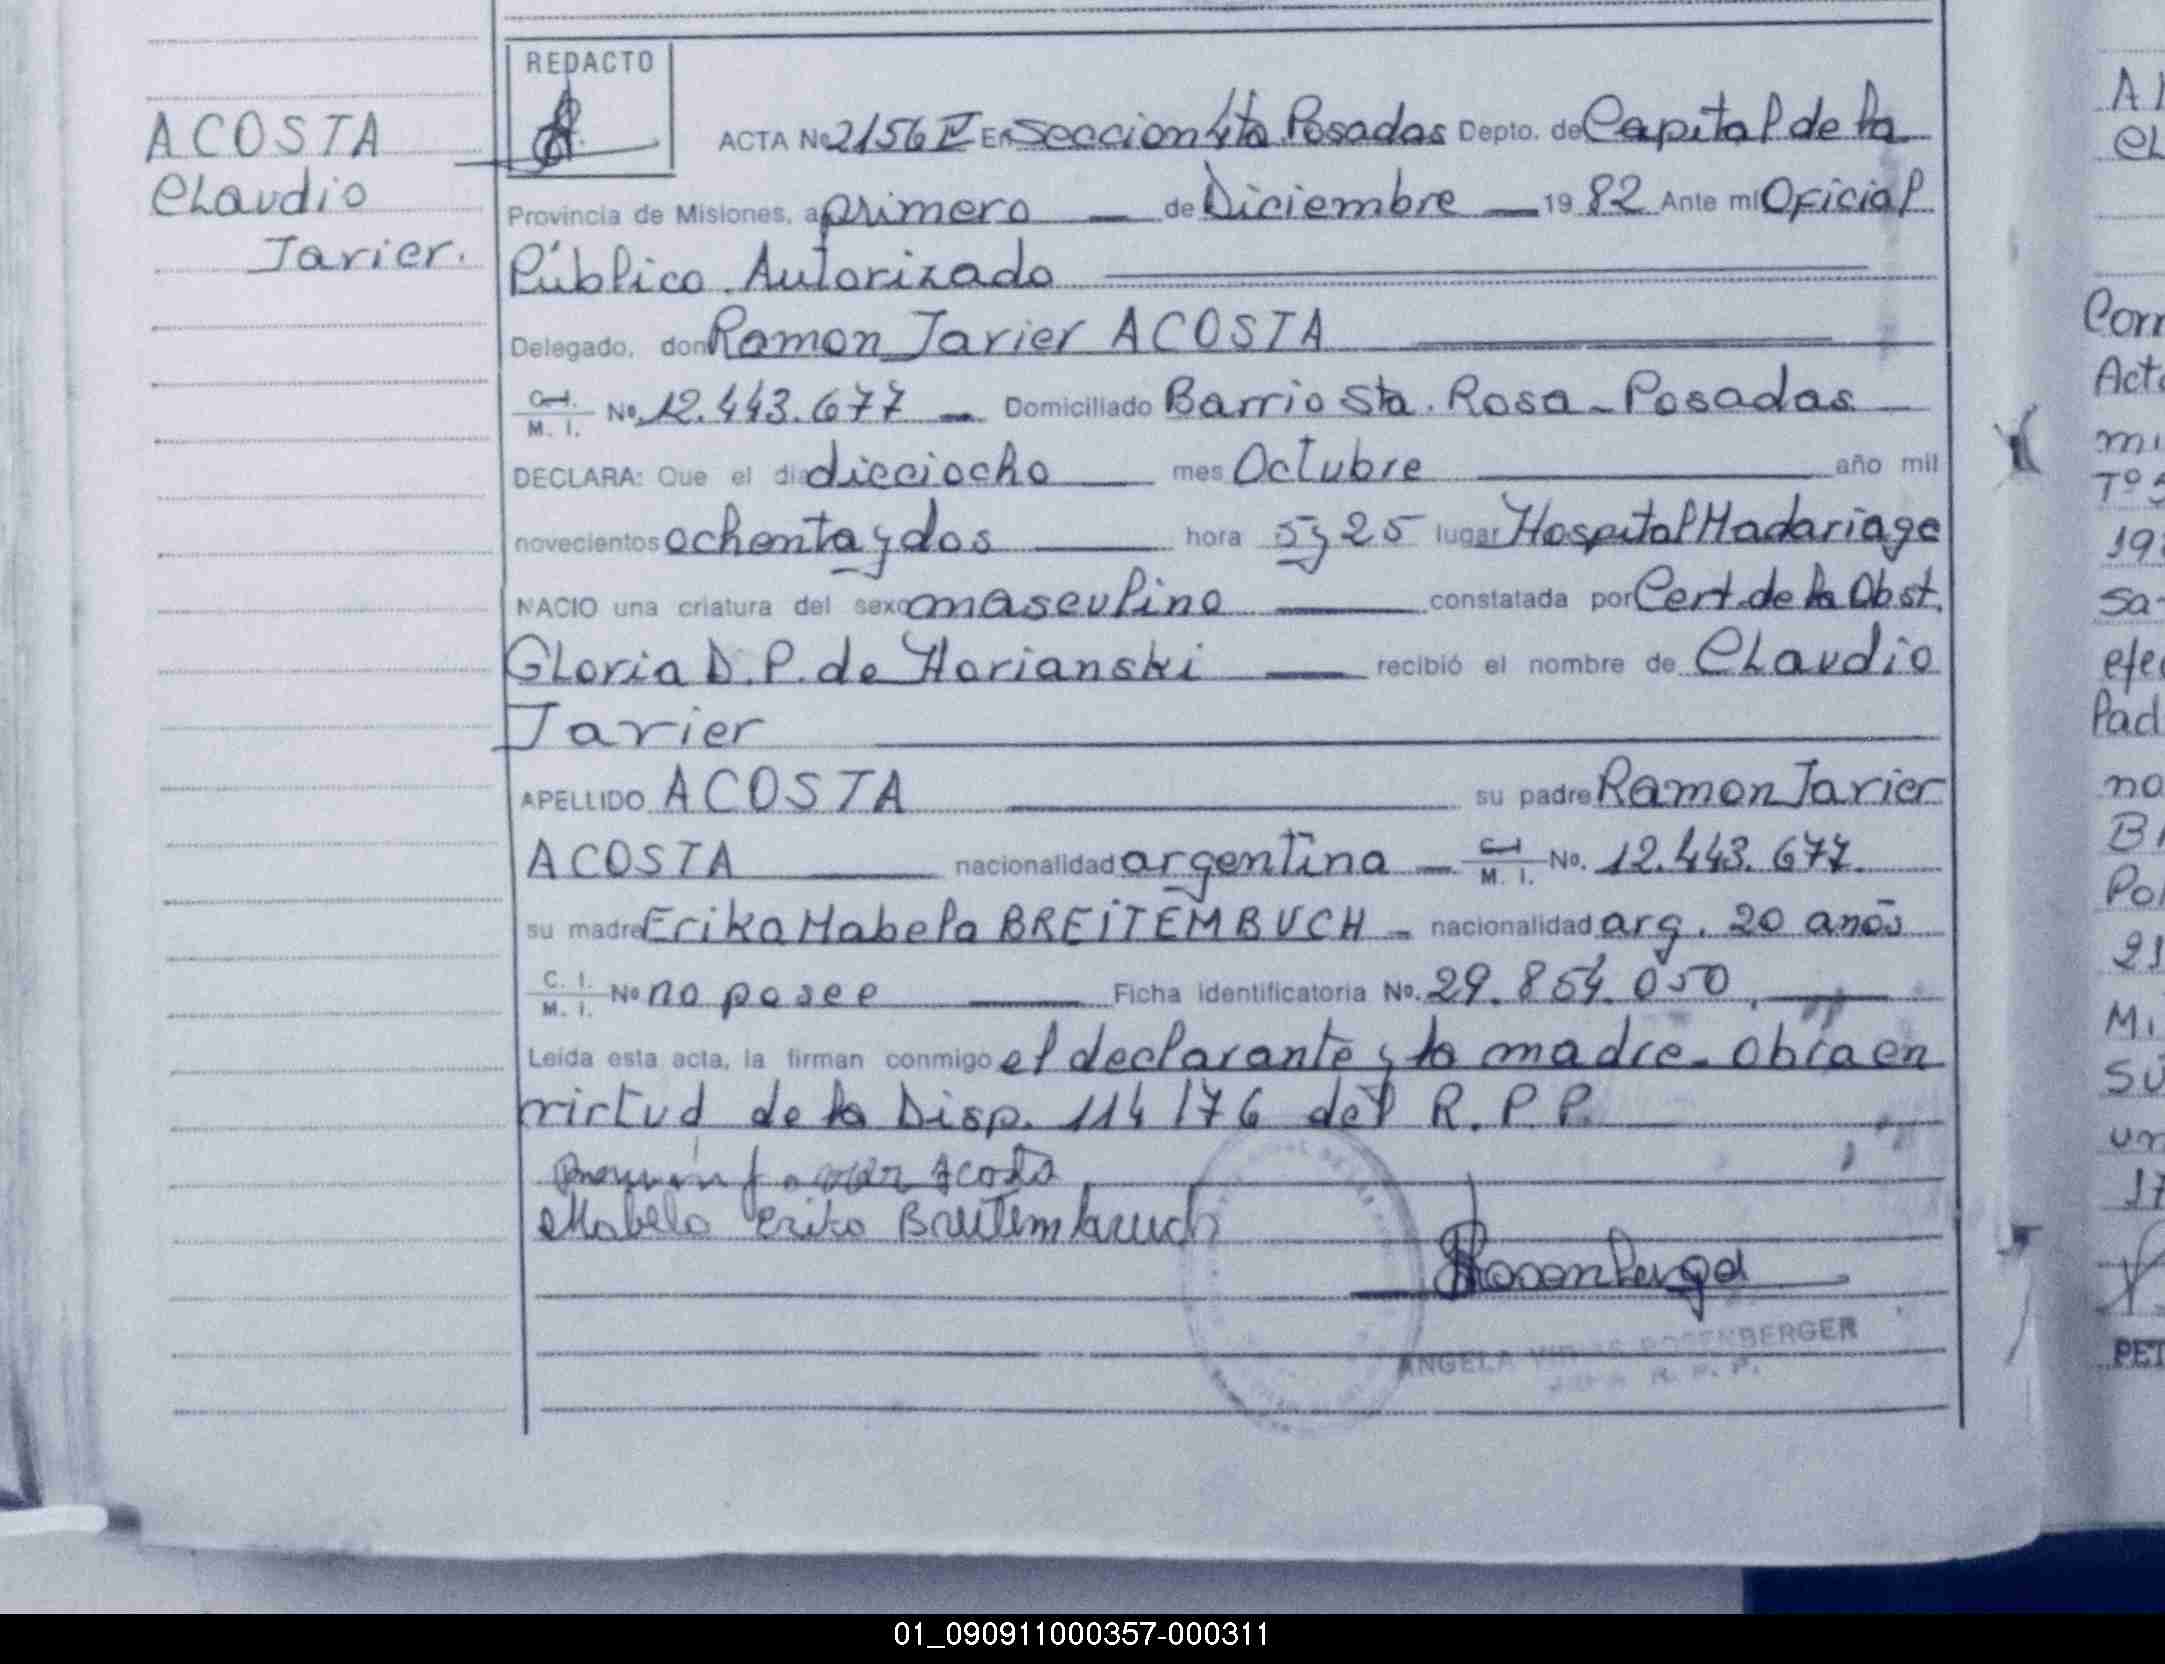 REDACTO
ACOSTA
CLaudio
Javier.
ACTA No 2156 IV En seccion 4ta Posadas Depto. de Capital de la
Provincia de Misiones, a primero de Diciembre 1982 Ante mi Oficial
Público Autorizado
Delegado, don Ramon Javier ACOSTA
C. I. M. I. No. 12.443.677 Domiciliado Barrio Sta. Rosa - Posadas
DECLARA: Que el dia dieciocho mes Octubre año mil
novecientos ochenta y dos hora 5 y 25 lugar Hospital Madariaga
NACIO una criatura del sexo masculino constatada por Cert. de la Obst.
GLoria D. P. de Horianski recibió el nombre de CLaudio
Javier
APELLIDO ACOSTA su padre Ramon Javier
ACOSTA nacionalidad argentina C. I. M. I. No. 12.443.677.
su madre Erika Mabela BREITEMBUCH - nacionalidad arg. 20 años
C. I. M. I. No no posee Ficha identificatoria No. 29.854.050
Leída esta acta, la firman conmigo el declarante y la madre - Obra en
virtud de la Disp. 114/76 del R. P. P.
Javier Acosta
Mabela Erika Breitembuch
Rosenberger
ANGELA ROSENBERGER
R. P. P.
A
CL
Corr
Acta
mi
Tº 5
19
sa
efec
Pad
no
B
Po
21
Mi
SU
un
17
PET
01_090911000357-000311